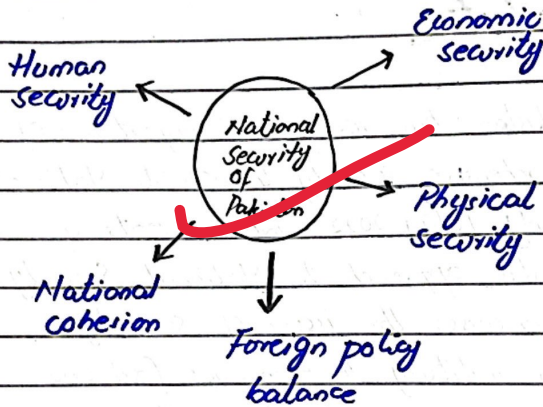 Economic
security
Human
security
National
Security
Of
Pakistan
Physical
security
National
cohesion
Foreign policy
balance